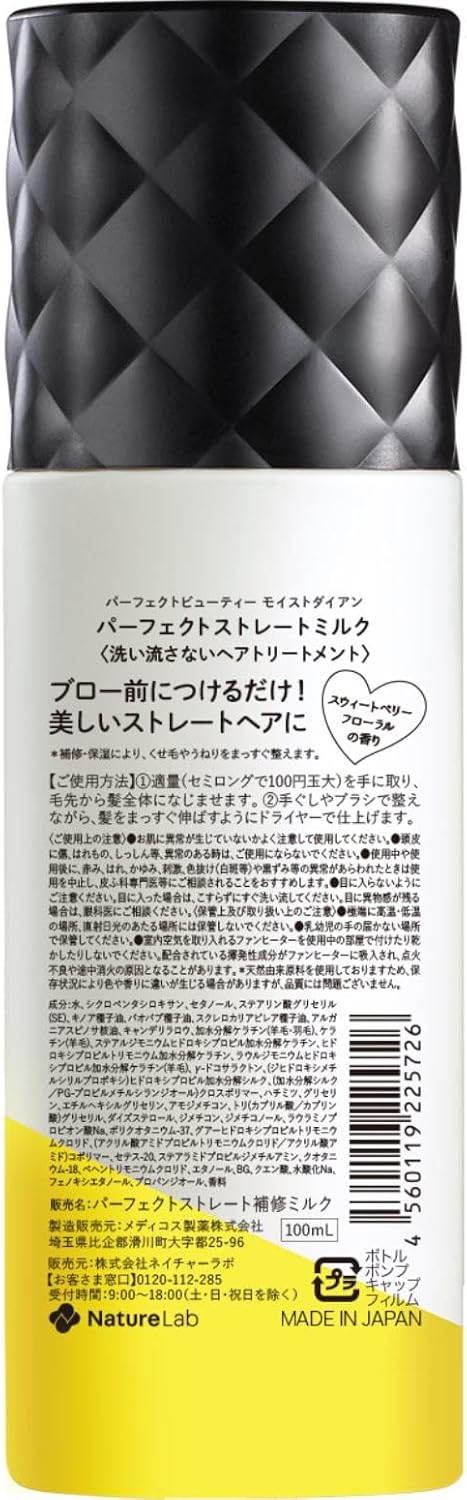 パーフェクトビューティー モイストダイアン
パーフェクトストレートミルク
〈洗い流さないヘアトリートメント〉
ブロー前につけるだけ!
美しいストレートヘアに
スウィートベリー
フローラル
の香り
*補修・保湿により、くせ毛やうねりをまっすぐ整えます。
【ご使用方法】①適量(セミロングで100円玉大)を手に取り、
毛先から髪全体になじませます。②手ぐしやブラシで整え
ながら、髪をまっすぐ伸ばすようにドライヤーで仕上げます。
〈ご使用上の注意〉●お肌に異常が生じていないかよく注意して使用してください。●頭皮
に傷、はれもの、しっしん等、異常のある時は、ご使用にならないでください。●使用中や使
用後に、赤み、はれ、かゆみ、刺激、色抜け(白斑等)や黒ずみ等の異常があらわれたときは使
用を中止し、皮ふ科専門医等にご相談されることをおすすめします。●目に入らないように
ご注意ください。目に入った場合は、こすらずにすぐ洗い流してください。目に異物感が残る
場合は、眼科医にご相談ください。〈保管上及び取り扱い上のご注意〉●極端に高温・低温
の場所、直射日光のあたる場所には保管しないでください。●乳幼児の手の届かない場所
で保管してください。●室内空気を取り入れるファンヒーターを使用中の部屋で付けたり乾
かしたりしないでください。配合されている揮発性成分がファンヒーターに吸入され、点火
不良や途中消火の原因となることがあります。*天然由来原料を使用しておりますため、保
存状況により色や香りに違いが生じる場合がありますが、品質には問題ございません。
成分:水、シクロペンタシロキサン、セタノール、ステアリン酸グリセリル
(SE)、キノア種子油、バオバブ種子油、スクレロカリアビレア種子油、アルガ
ニアスピノサ核油、キャンデリラロウ、加水分解ケラチン(羊毛・羽毛)、ケラ
チン(羊毛)、ステアルジモニウムヒドロキシプロピル加水分解ケラチン、ヒド
ロキシプロピルトリモニウム加水分解ケラチン、ラウルジモニウムヒドロキ
シプロピル加水分解ケラチン(羊毛)、γ-ドコサラクトン、(ジヒドロキシメチ
ルシリルプロポキシ)ヒドロキシプロピル加水分解シルク、(加水分解シルク
/PG-プロピルメチルシランジオール)クロスポリマー、ハチミツ、グリセリ
ン、エチルヘキシルグリセリン、アモジメチコン、トリ(カプリル酸/カプリン
酸)グリセリル、ダイズステロール、ジメチコン、ジメチコノール、ラウラミノプ
ロピオン酸Na、ポリクオタニウム-37、グアーヒドロキシプロピルトリモニウ
ムクロリド、(アクリル酸アミドプロピルトリモニウムクロリド/アクリル酸ア
ミド)コポリマー、セテス-20、ステアラミドプロピルジメチルアミン、クオタニ
ウム-18、ベヘントリモニウムクロリド、エタノール、BG、クエン酸、水酸化Na、
フェノキシエタノール、プロパンジオール、香料
販売名:パーフェクトストレート補修ミルク
製造販売元:メディコス製薬株式会社
埼玉県比企郡滑川町大字都25-96
100mL
販売元:株式会社ネイチャーラボ
【お客さま窓口】0120-112-285
受付時間:9:00~18:00(土・日・祝日を除く)
NatureLab
4 560119 225726
プラ
ボトル
ポンプ
キャップ
フィルム
MADE IN JAPAN